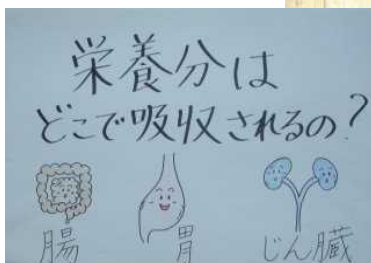 栄養分は
どこで吸収されるの?
腸 胃 じん臓